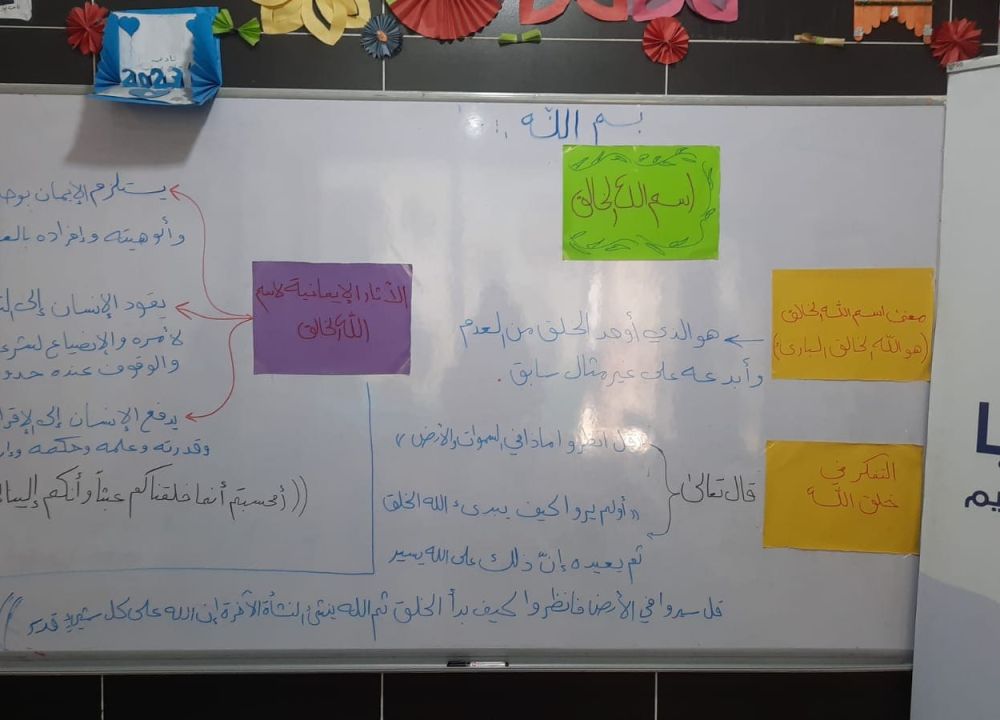 بسم الله
اسم الله الخالق
معنى اسم الله الخالق
(هو الله الخالق البارئ)
هو الذي أوجد الخلق من العدم
وأبدعه على غير مثال سابق.
التفكر في
خلق الله
قال تعالى
قل انظروا ماذا في السموات والأرض
أولم يروا كيف يبدىء الله الخلق
ثم يعيده إنّ ذلك على الله يسير
قل سيروا في الأرض فانظروا كيف بدأ الخلق ثم الله ينشئ النشأة الآخرة إن الله على كل شيء قدير
الأثار الإيمانية لاسم
الله الخالق
يستلزم الإيمان
وألوهيته وإفراده
يقود الإنسان إلى
لأمره والإنصياع
والوقوف عنده
يدفع الإنسان إلى
وقدرته وعلمه وحكمته
((أفحسبتم أنما خلقناكم عبثاً وأنكم إلينا
نادي
2023